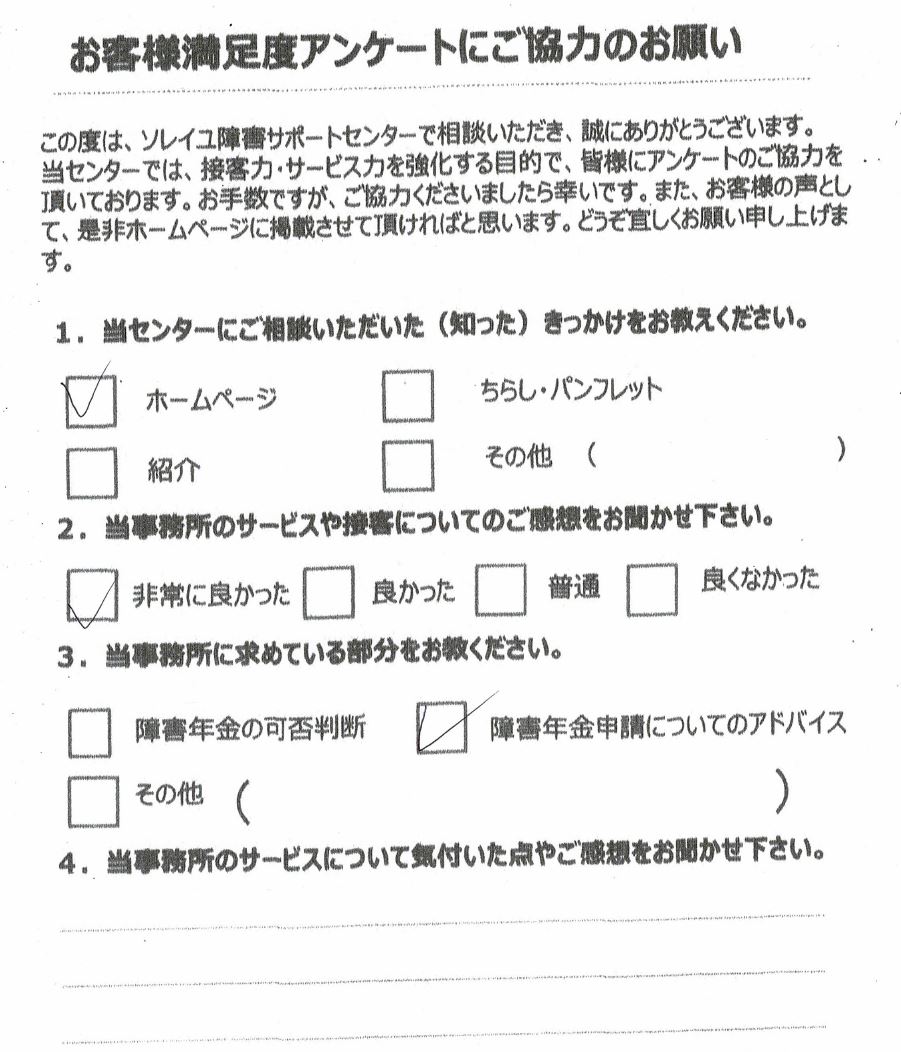 お客様満足度アンケートにご協力のお願い
この度は、ソレイユ障害サポートセンターで相談いただき、誠にありがとうございます。
当センターでは、接客力・サービス力を強化する目的で、皆様にアンケートのご協力を
頂いております。お手数ですが、ご協力くださいましたら幸いです。また、お客様の声とし
て、是非ホームページに掲載させて頂ければと思います。どうぞ宜しくお願い申し上げま
す。
1．当センターにご相談いただいた（知った）きっかけをお教えください。
ホームページ ちらし・パンフレット
紹介 その他 ( )
2．当事務所のサービスや接客についてのご感想をお聞かせ下さい。
非常に良かった 良かった 普通 良くなかった
3．当事務所に求めている部分をお教ください。
障害年金の可否判断 障害年金申請についてのアドバイス
その他 ( )
4．当事務所のサービスについて気付いた点やご感想をお聞かせ下さい。